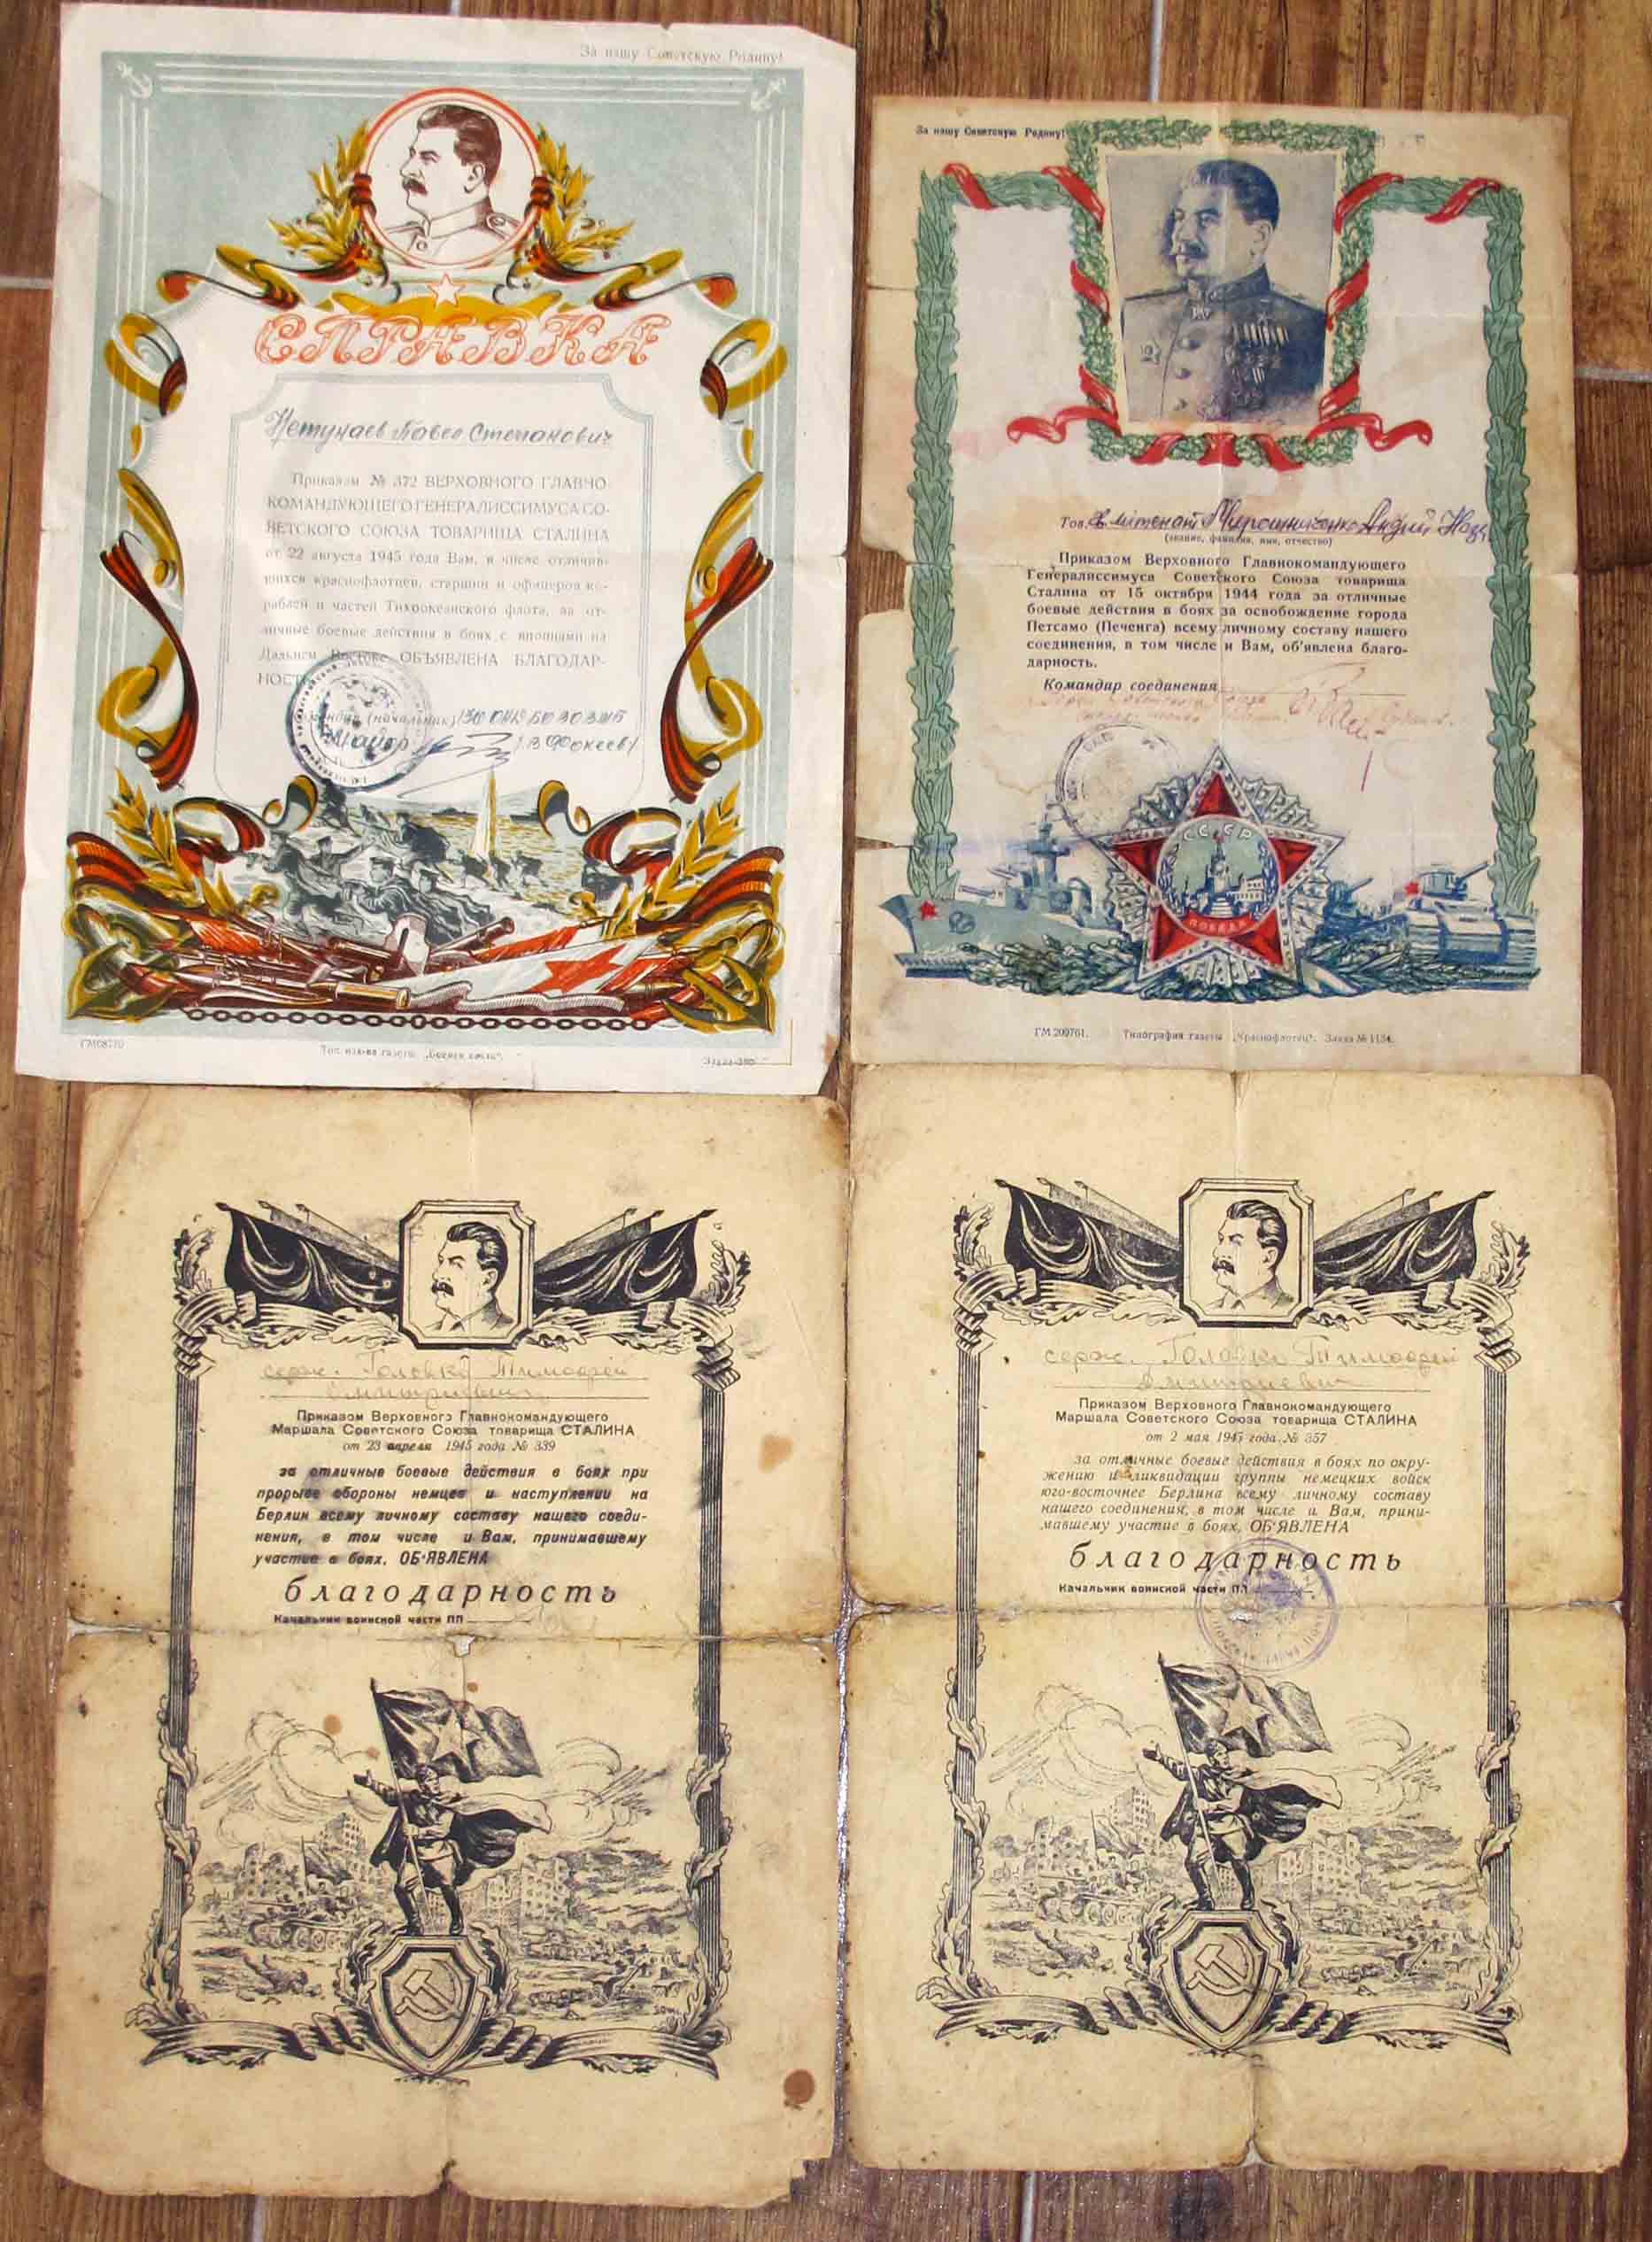 За нашу Советскую Родину!
СПРАВКА
Павел Степанович
Приказом № 372 ВЕРХОВНОГО ГЛАВНО-
КОМАНДУЮЩЕГО ГЕНЕРАЛИССИМУСА СО-
ВЕТСКОГО СОЮЗА ТОВАРИЩА СТАЛИНА
от 22 августа 1945 года Вам, в числе отличив-
шихся краснофлотцев, старшин и офицеров ко-
раблей и частей Тихоокеанского флота, за от-
личные боевые действия в боях с японцами на
Дальнем Востоке ОБЪЯВЛЕНА БЛАГОДАР-
НОСТЬ
Командир (начальник)
Майор
За нашу Советскую Родину!
Тов. Мирошниченко Андрій
(звание, фамилия, имя, отчество)
Приказом Верховного Главнокомандующего
Генералиссимуса Советского Союза товарища
Сталина от 15 октября 1944 года за отличные
боевые действия в боях за освобождение города
Петсамо (Печенга) всему личному составу нашего
соединения, в том числе и Вам, об'явлена благо-
дарность.
Командир соединения
СССР
ПОБЕДА
ГМ 209761. Типография газеты „Краснофлотец“. Заказ № 1134.
серж. Головко Тимофей
Дмитриевич
Приказом Верховного Главнокомандующего
Маршала Советского Союза товарища СТАЛИНА
от 23 апреля 1945 года № 339
за отличные боевые действия в боях при
прорыве обороны немцев и наступлении на
Берлин всему личному составу нашего соеди-
нения, в том числе и Вам, принимавшему
участие в боях, ОБ'ЯВЛЕНА
благодарность
Начальник воинской части ПП
серж. Головко Тимофей
Дмитриевич
Приказом Верховного Главнокомандующего
Маршала Советского Союза товарища СТАЛИНА
от 2 мая 1945 года № 357
за отличные боевые действия в боях по окру-
жению и ликвидации группы немецких войск
юго-восточнее Берлина всему личному составу
нашего соединения, в том числе и Вам, прини-
мавшему участие в боях, ОБ'ЯВЛЕНА
благодарность
Начальник воинской части ПП